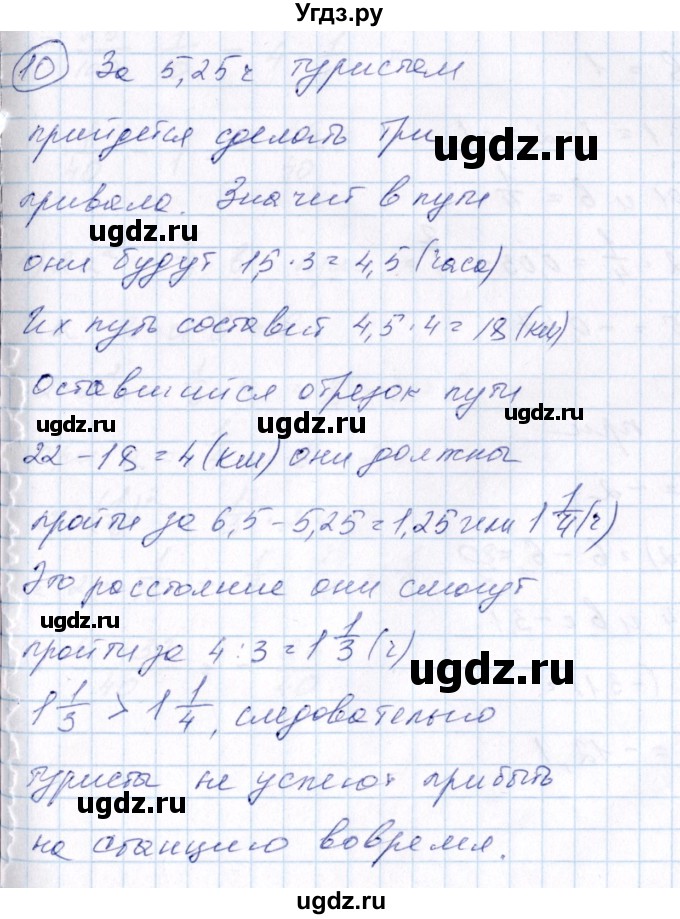 Угдз.ру
10 За 5,25 ч туристам
прийдется сделать три
ugdz.ru
привала. Значит в пути
ugdz.ru
они будут 1,5 · 3 = 4,5 (часа)
Их путь составит 4,5 · 4 = 18 (км)
Оставшийся отрезок пути
ugdz.ru ugdz.ru ugdz.ru
22 - 18 = 4 (км) они должны
пройти за 6,5 - 5,25 = 1,25 или 1 1/4 (ч)
Это расстояние они смогут
ugdz.ru
пройти за 4 : 3 = 1 1/3 (ч)
ugdz.ru
1 1/3 > 1 1/4, следовательно
туристы не успеют прибыть
ugdz.ru
на станцию вовремя.
ugdz.ru